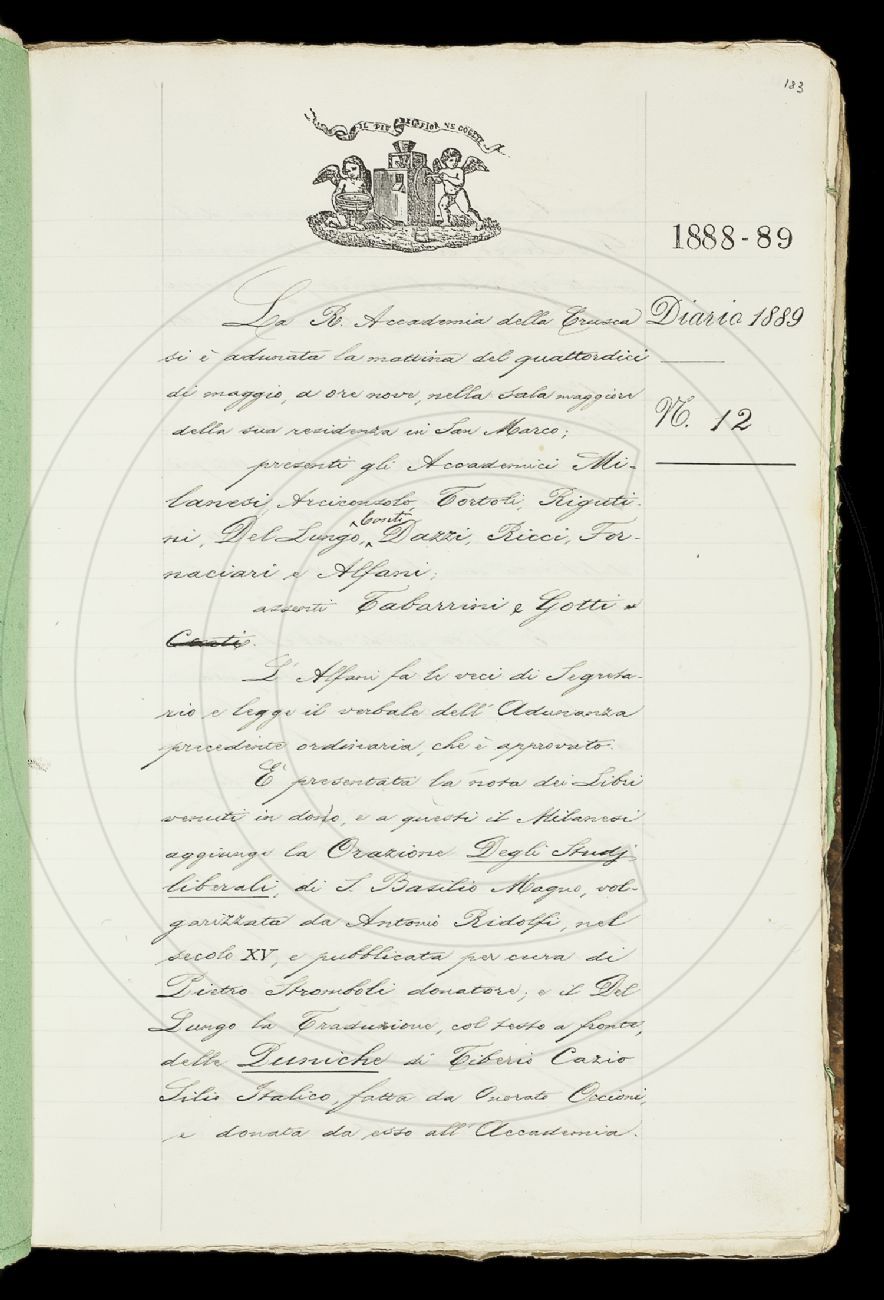 183
IL PIÙ BEL FIOR NE COGLIE
1888-89
Diario 1889
N. 12
La R. Accademia della Crusca
si è adunata la mattina del quattordici
di maggio, a ore nove, nella sala maggiore
della sua residenza in San Marco;
presenti gli Accademici Mi-
lanesi Arciconsolo, Tortoli, Riguti-
ni, Del Lungo, Conti, Dazzi, Ricci, For-
naciari e Alfani;
assenti Tabarrini e Gotti e
Conti.
L'Alfani fa le veci di Segreta-
rio e legge il verbale dell'Adunanza
precedente ordinaria, che è approvato.
E' presentata la nota dei Libri
venuti in dono, e a questi il Milanesi
aggiunge la Orazione Degli Studj
liberali, di S. Basilio Magno, vol-
garizzata da Antonio Ridolfi, nel
secolo XV, e pubblicata per cura di
Pietro Stromboli donatore; e il Del
Lungo la Traduzione, col testo a fronte,
delle Puniche di Tiberio Cazio
Silio Italico, fatta da Onorato Occioni,
e donata da esso all'Accademia.